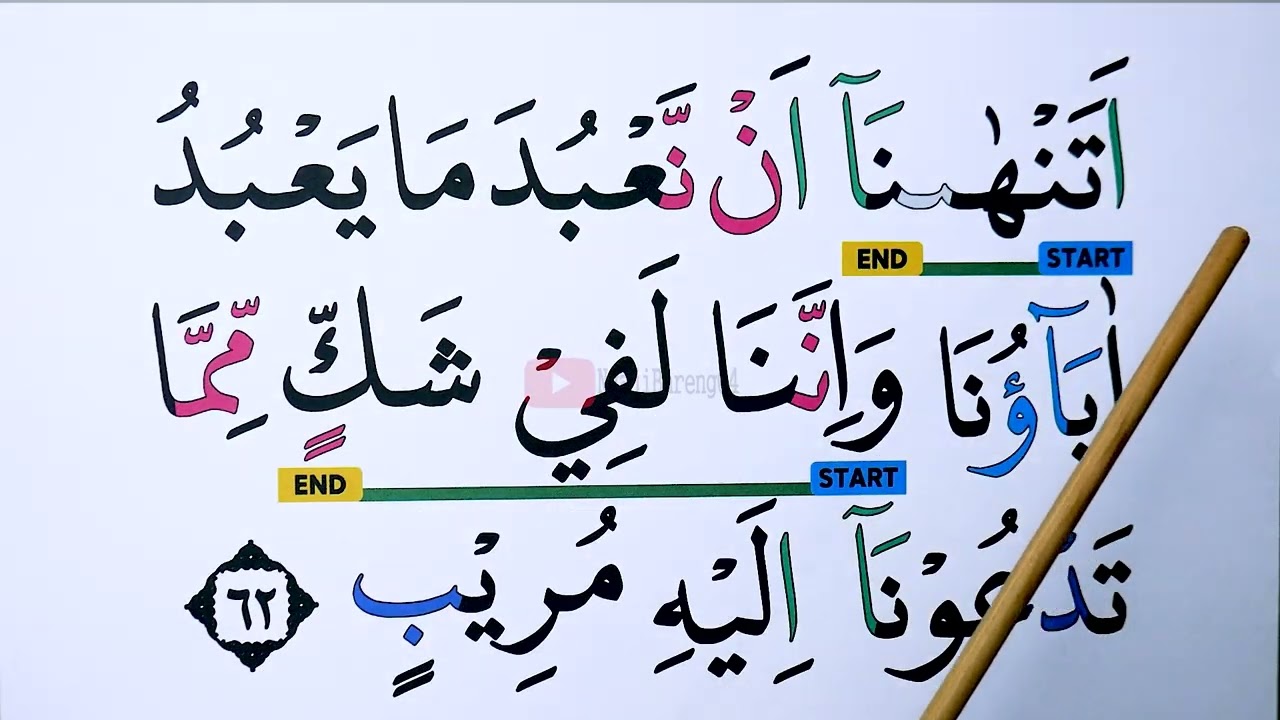 اَتَنْهٰىنَآ اَنْ نَّعْبُدَ مَا يَعْبُدُ
END START
اٰبَآؤُنَا وَاِنَّنَا لَفِيْ شَكٍّ مِّمَّا
END START
تَدْعُوْنَآ اِلَيْهِ مُرِيْبٍ ٦٢